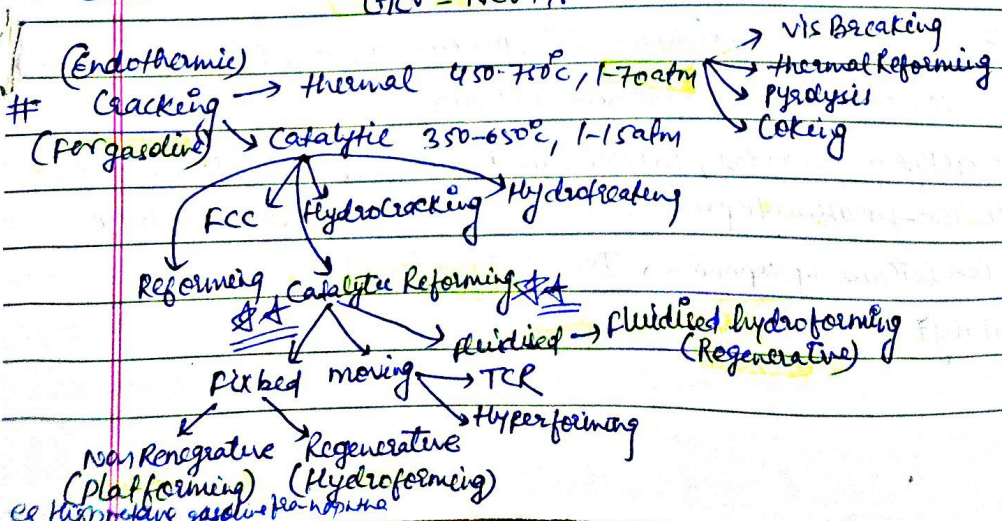 (Endothermic)
# Cracking → thermal 450-750°c, 1-70atm
→ Vis Breaking
→ thermal Reforming
→ Pyrolysis
→ Coking
(for gasoline) → Catalytic 350-650°c, 1-15atm
FCC Hydrocracking Hydrotreating
Reforming Catalytic Reforming
fluidised → fluidised hydroforming
(Regenerative)
Fixbed moving → TCR
→ Hyperforming
Non Renegrative Regenerative
(Platforming) (Hydroforming)
gasoline naphtha